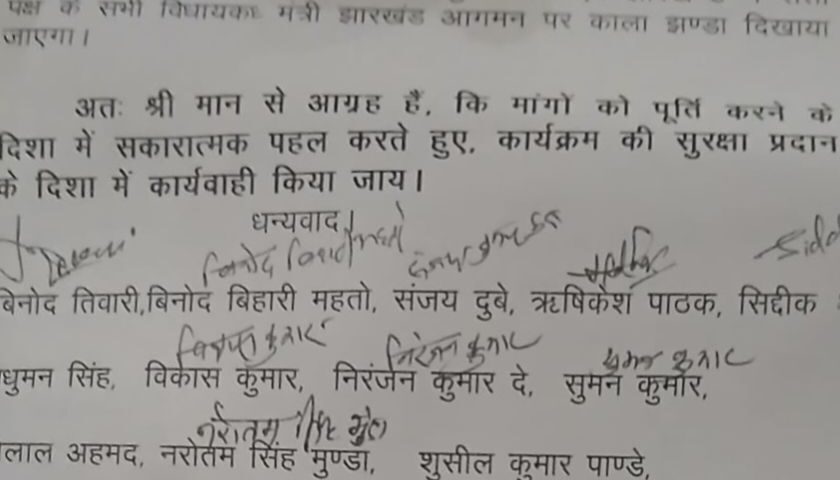 पक्ष के सभी विधायक मंत्री झारखंड आगमन पर काला झण्डा दिखाया
जाएगा।
अतः श्री मान से आग्रह है, कि मांगो को पूर्ति करने के
दिशा में सकारात्मक पहल करते हुए, कार्यक्रम की सुरक्षा प्रदान
के दिशा में कार्यवाही किया जाय।
धन्यवाद।
बिनोद बिहारी महतो
बिनोद तिवारी,बिनोद बिहारी महतो, संजय दुबे, ऋषिकेश पाठक, सिद्दीक
विकास कुमार निरंजन कुमार सुमन कुमार
धुमन सिंह, विकास कुमार, निरंजन कुमार दे, सुमन कुमार,
नरोतम सिंह मुंडा
लाल अहमद, नरोतम सिंह मुण्डा, शुसील कुमार पाण्डे,